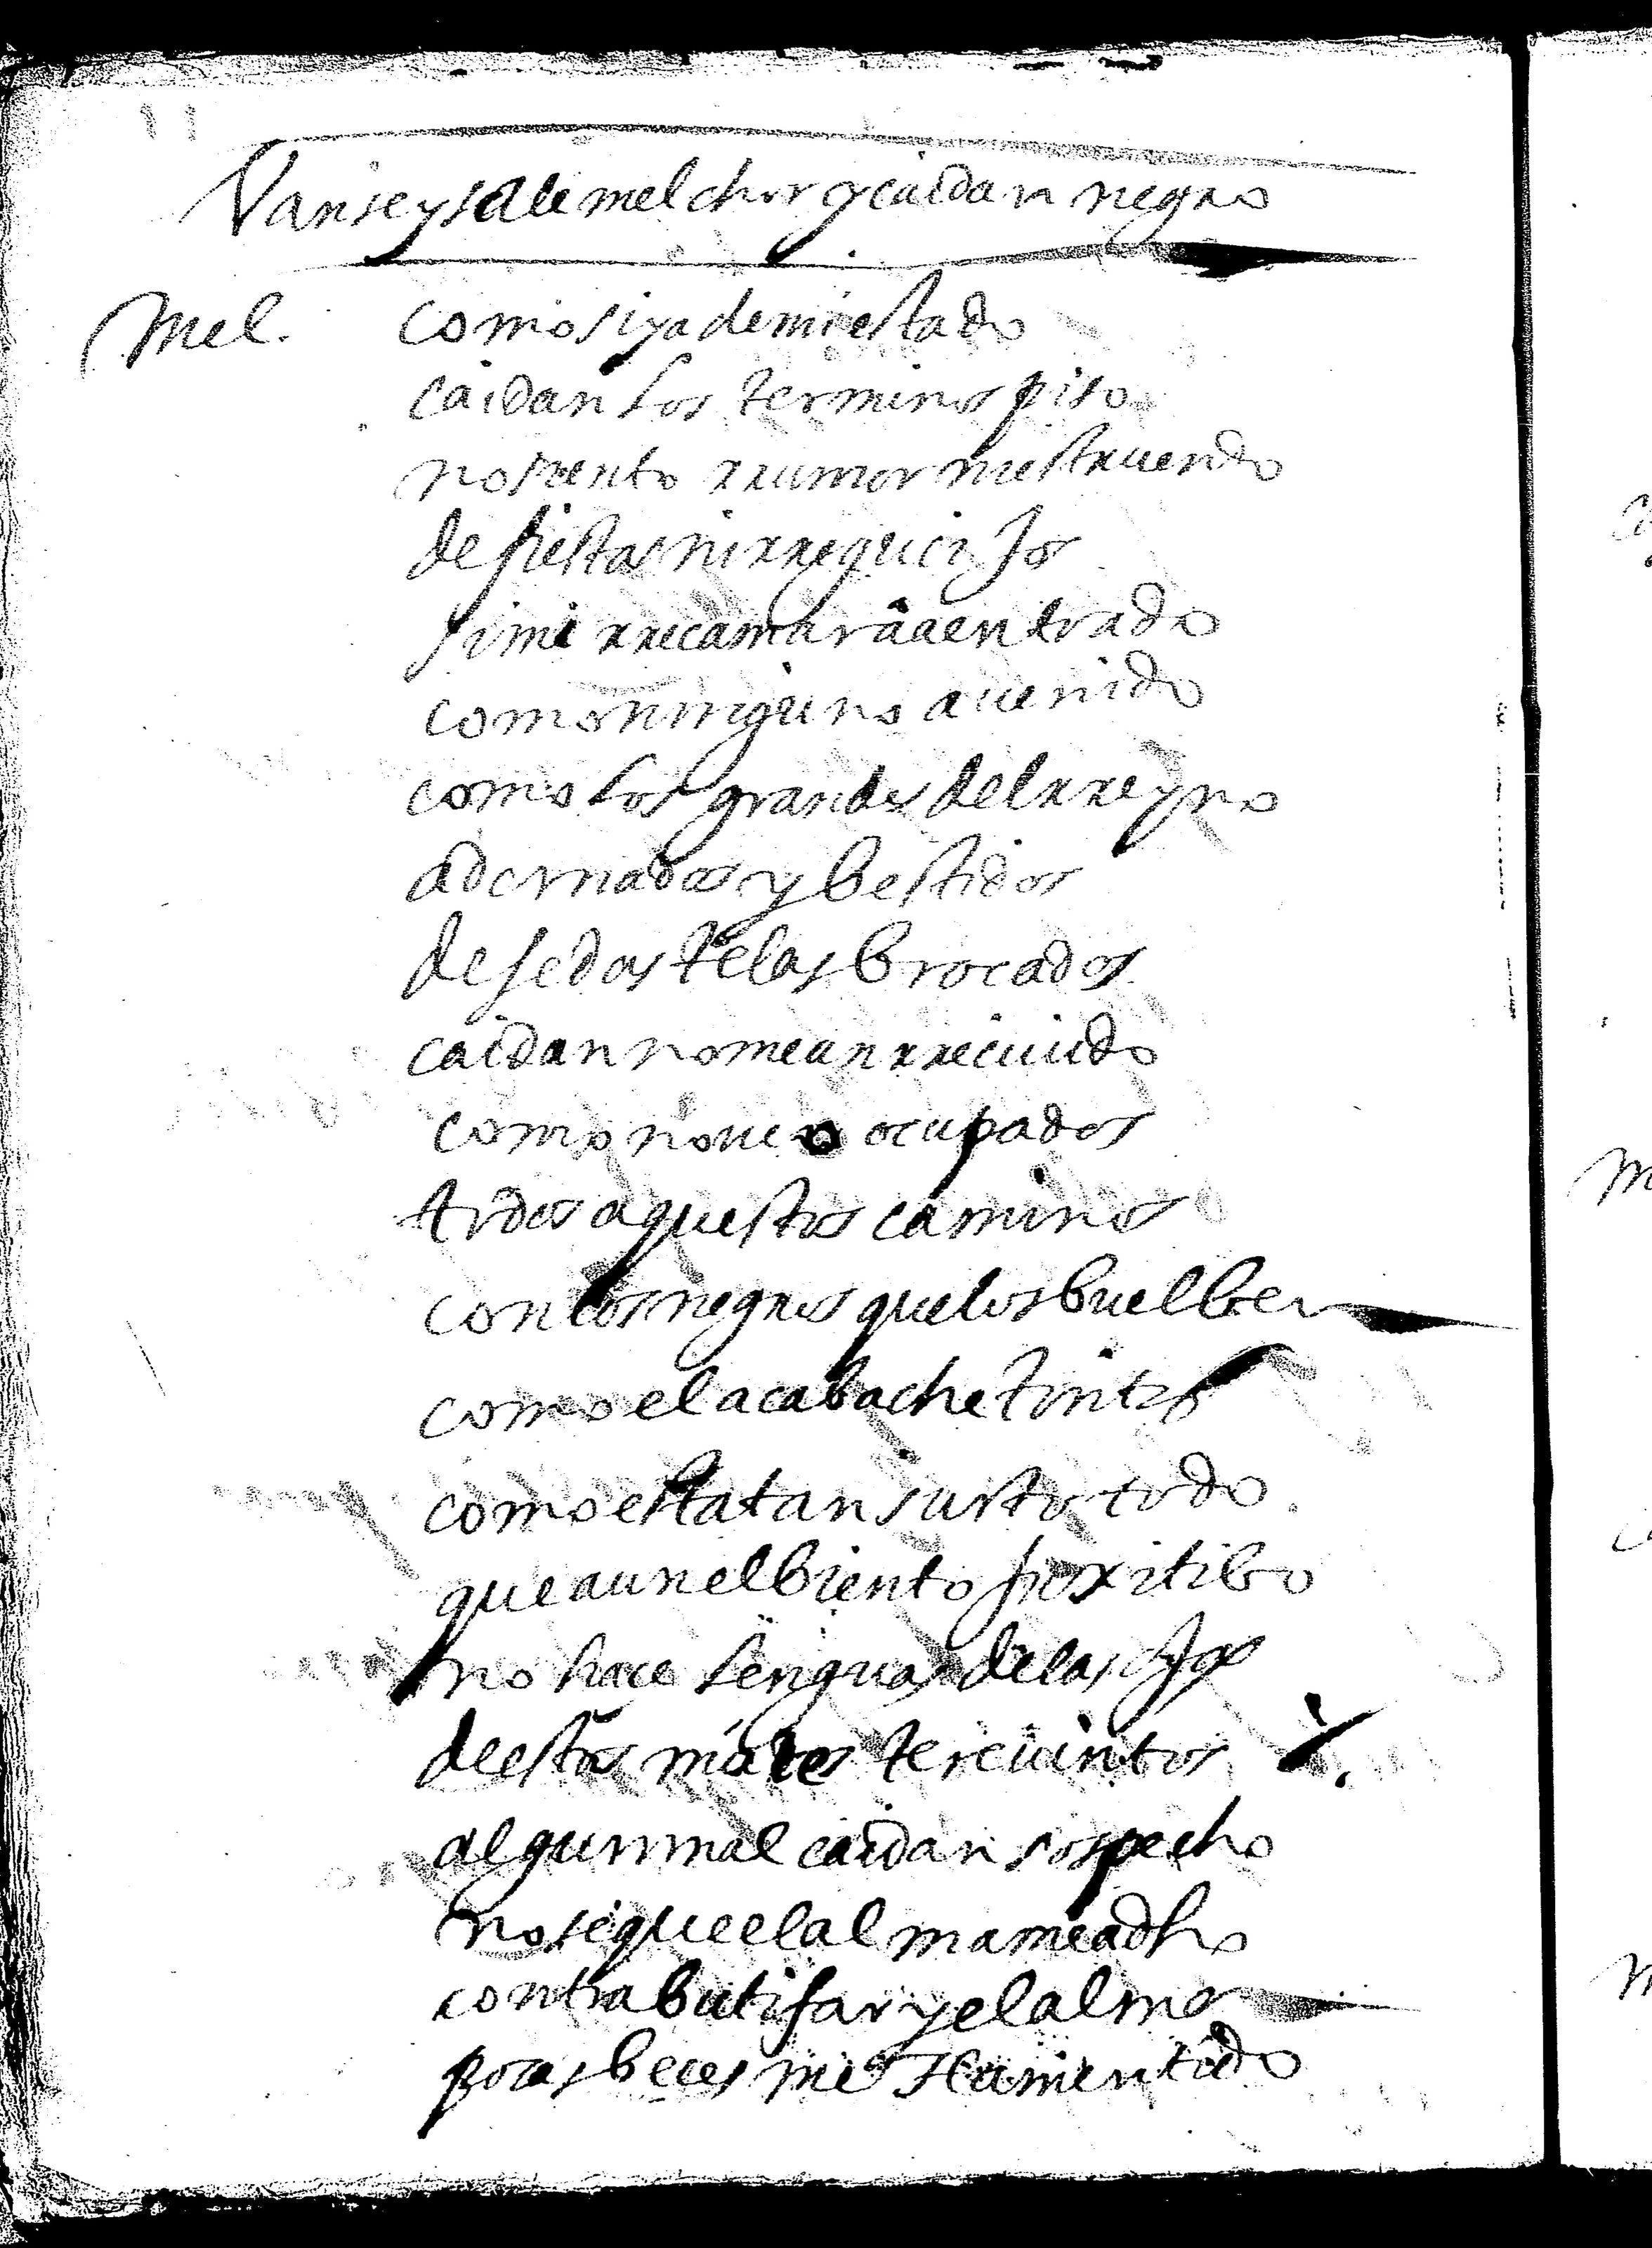 Vanse y sale melchor y caidan negro
Mel. como si ya de mi estado
caidan los terminos piso
no siento rrumor ni estruendo
de fiestas ni rregucijos
si mi rrecamara a entrado
como ninguno a uenido
como los grandes del rreyno
adornados y bestidos
de sedas telas brocados
caidan no me an rreciuido
como no ueo ocupados
todos aquestos caminos
con los negros que los buelben
como el acabache tintos
como esta tan surto todo
que aun el biento
no hace lenguas de las ojas
de estos terebintos
algun mal caidan sospecho
no se que el alma me a dho
contra butifar y el alma
pocas beces me ha mentido